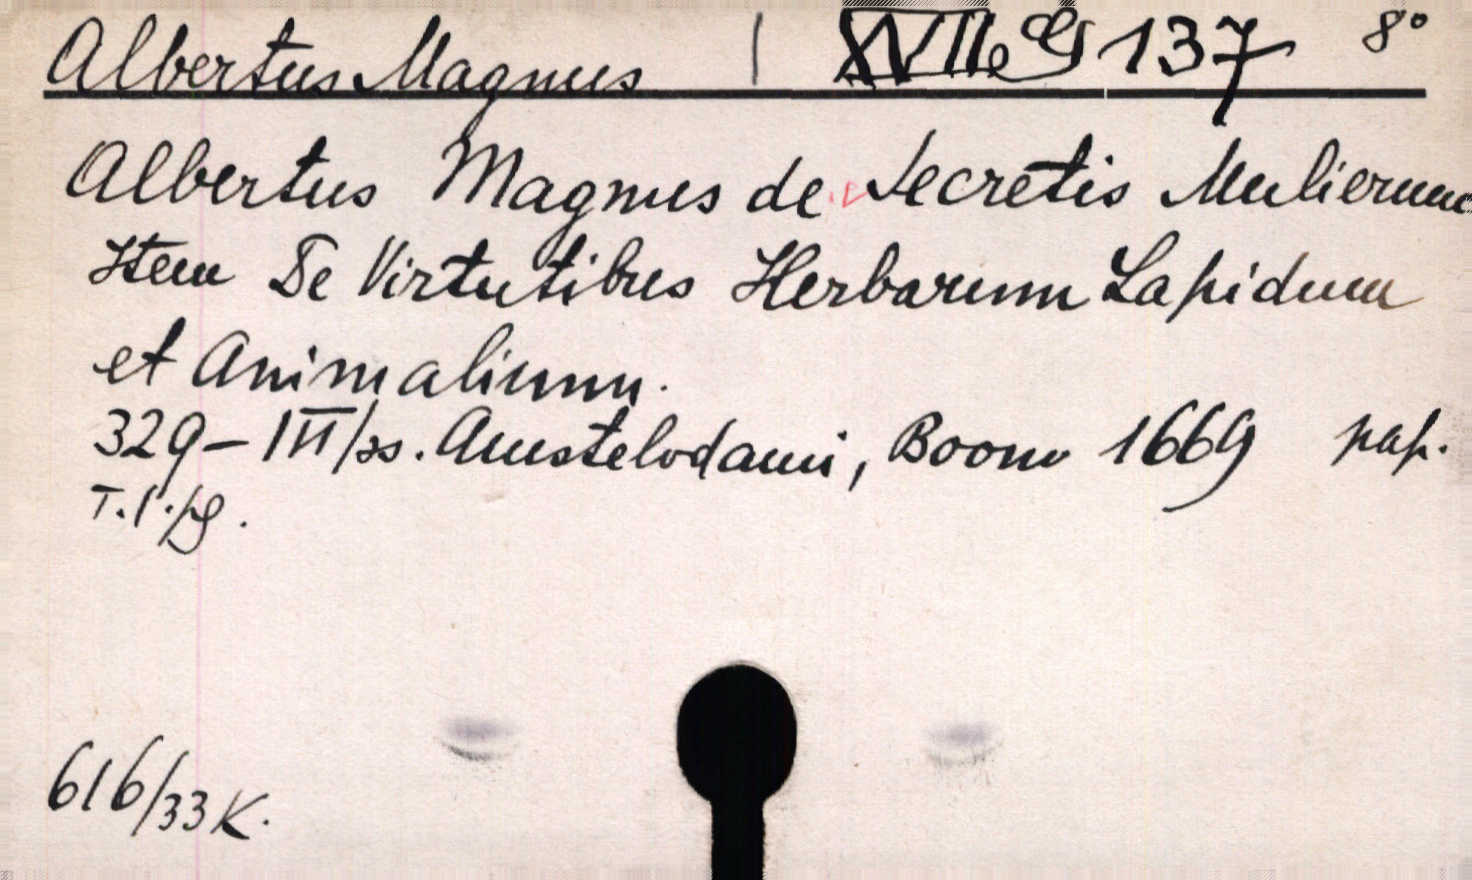 Albertus Magnus | XVII e 137 8°
Albertus Magnus de Secretis Mulierum
Item De Virtutibus Herbarum Lapidum
et Animalium.
329 – III/ss. Amstelodami, Boom 1669 pap.
T. I. pg.
616/33 K.